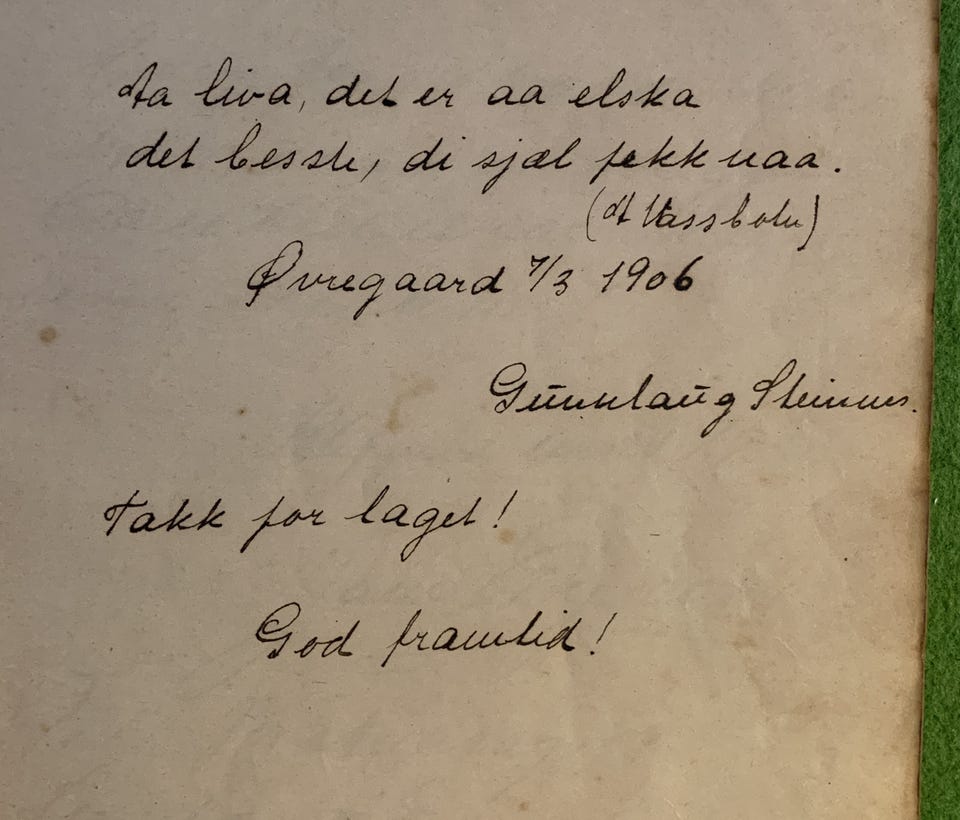 Aa liva, det er aa elska
det besste, di sjæl fekk naa.
(A Vassbotn)
Øvregaard 7/3 1906
Gunnlaug Steinnes.
Takk for laget!
God framtid!